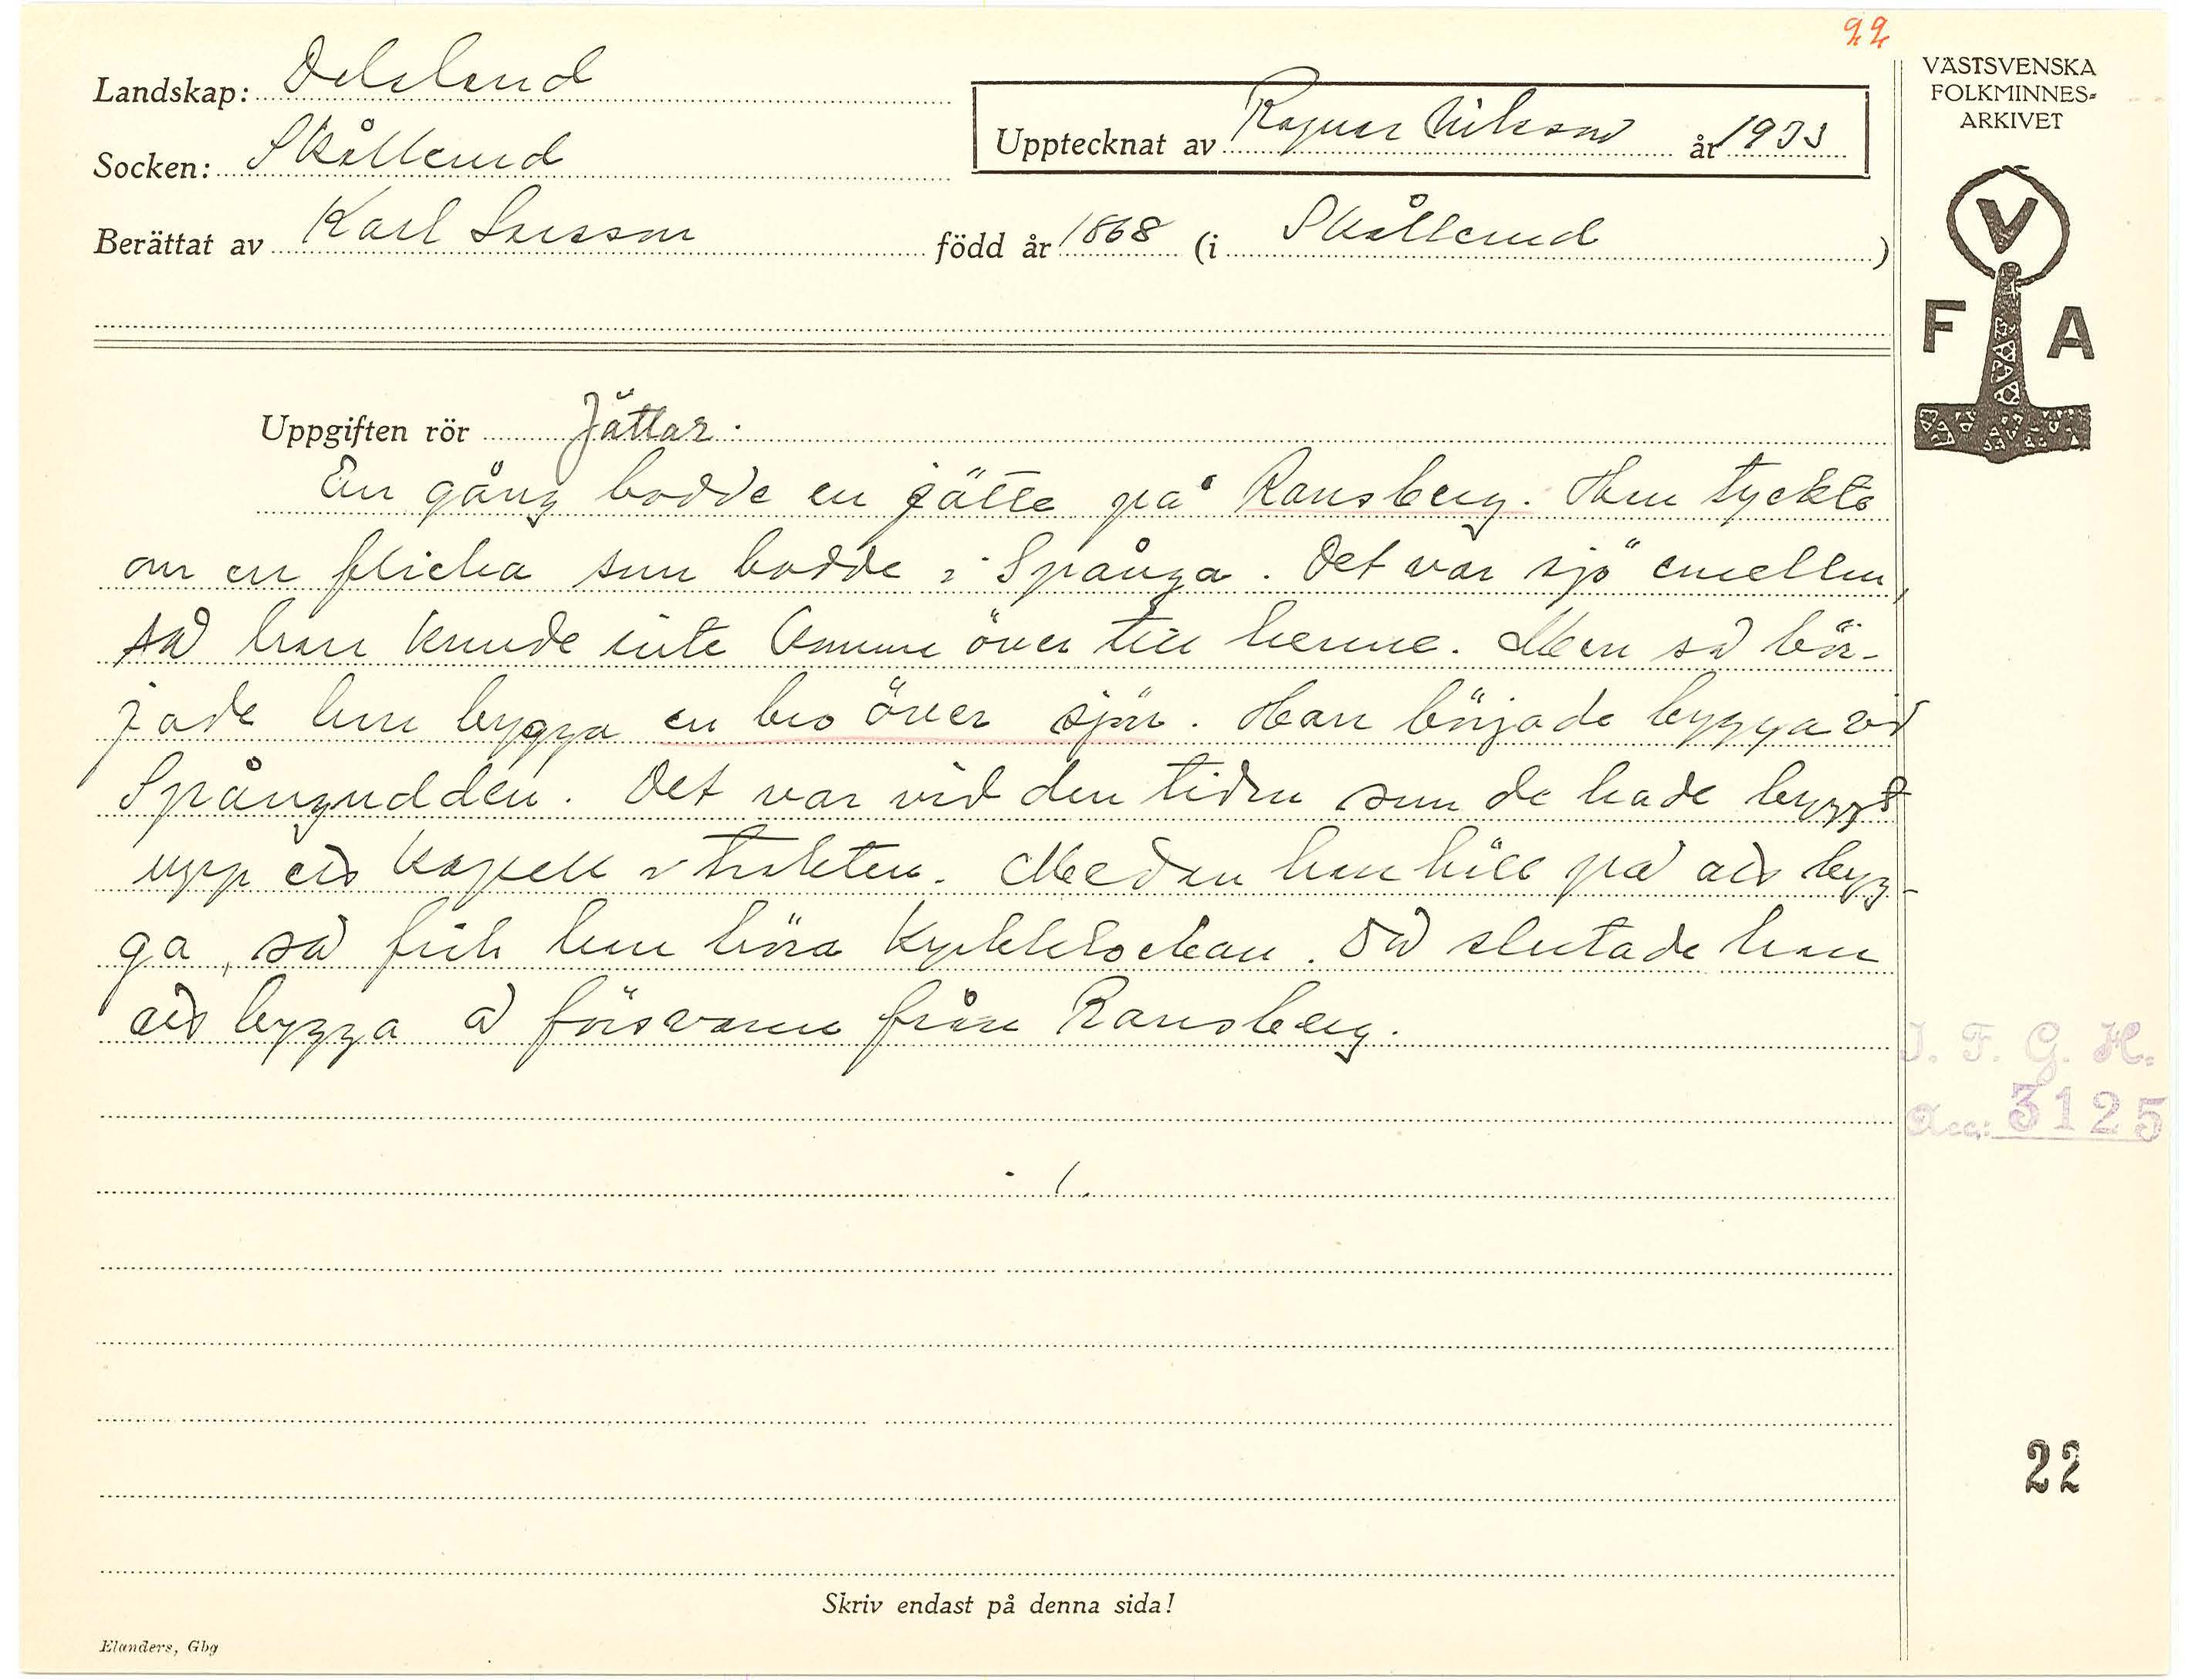 22
Landskap: Dalsland
Socken: Skållerud
Upptecknat av Ragnar Nilsson år 1933
Berättat av Karl Larsson född år 1868 (i Skållerud)
Uppgiften rör Jättar.
En gång bodde en jätte på Ransberg. Han tyckte
om en flicka som bodde i Spånga. Det var sjö emellan,
så han kunde inte komma över till henne. Men så bör-
jade han bygga en bro över sjön. Han började bygga vid
Spångudden. Det var vid den tiden som de hade byggt
upp ett kapell i trakten. Medan han höll på att byg-
ga, så fick han höra kyrkklockan. Då slutade han
att bygga å försvann från Ransberg.
VÄSTSVENSKA
FOLKMINNES-
ARKIVET
V
F A
I. F. G. H.
Acc: 3125
22
Skriv endast på denna sida!
Elanders, Gbg